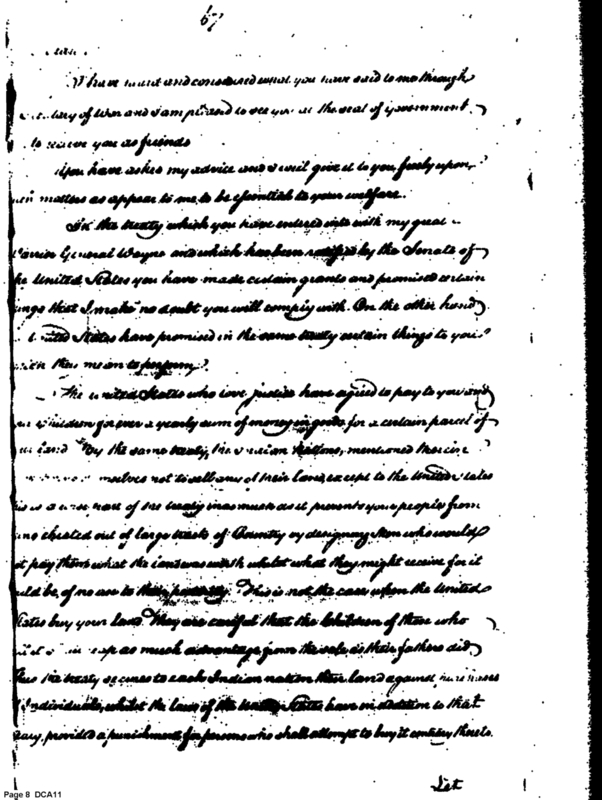 67
I have heard and considered what you have said to me through
of War and I am pleased to see you at the seat of government
to receive you as friends
You have asked my advice and I will give it to you freely upon
matters as appear to me to be essential to your welfare.
In the treaty which you have entered into with my great
Warrior General Wayne and which has been ratified by the Senate of
the United States you have made certain grants and promised certain
things that I make no doubt you will comply with. On the other hand
United States have promised in the same treaty certain things to you
which they mean to perform.
The United States who love justice have agreed to pay to you and
your children for ever a yearly sum of money in goods for a certain parcel of
land By the same treaty, the Indian Nations, mentioned therein
not to sell any of their land except to the United States
This is a wise part of the treaty inasmuch as it prevents your people from
being cheated out of large tracts of Country by designing Men who would
not pay them what the land was worth whilst what they might receive for it
would be of no use to their posterity. This is not the case when the United
States buy your land. They are careful that the Children of those who
reap as much advantage from the sale as their fathers did
Thus the treaty secures to each Indian nation their land against purchases
of Individuals, whilst the laws of the United States have in addition to that
provided a punishment for persons who shall attempt to buy it contrary thereto.
Let
Page 8 DCA11